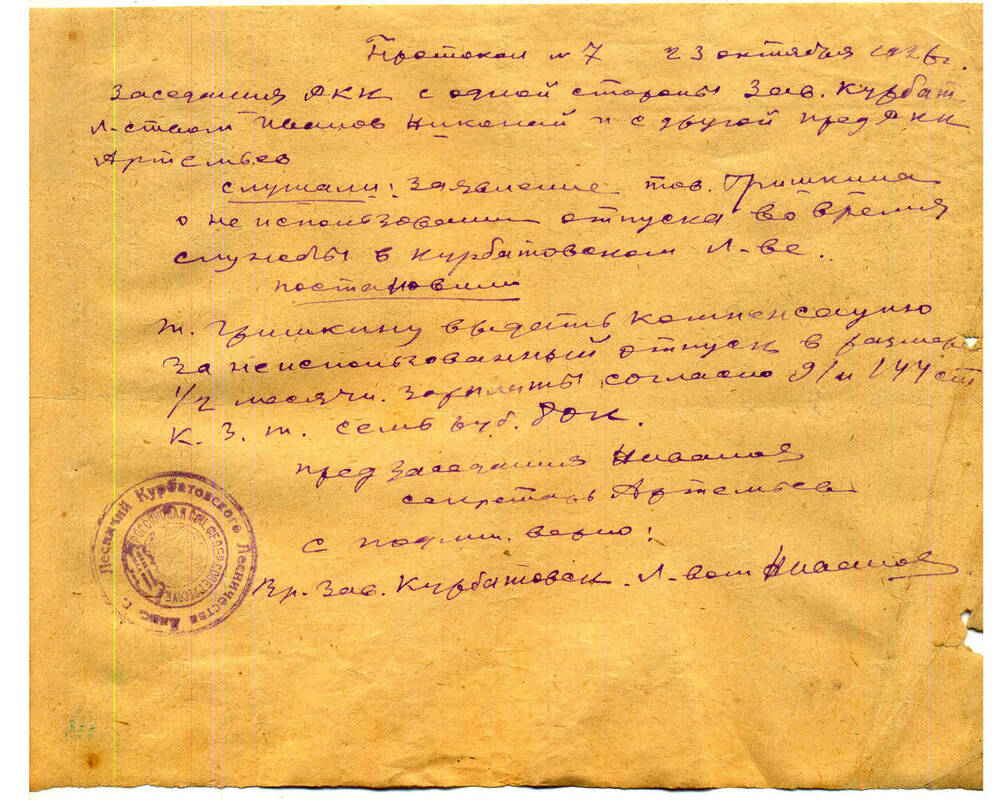 Протокол № 7 23 октября 1926 г.
заседания РКК с одной стороны Зав. Курбат.
Л-ством Иванов Николай и с другой пред РКК
Артемьев
слушали: заявление тов. Гришкина
о не использовании отпуска во время
службы в Курбатовском Л-ве.
постановили
т. Гришкину выдать компенсацию
за неиспользованный отпуск в размере
1/2 месячн. зарплаты согласно 91 и 144 ст
К. З. т. семь руб. 80 к.
пред заседания Иванов
секретарь Артемьев
с подлин. верно:
Вр. Зав. Курбатовск. Л-вом Иванов
Лесничий Курбатовского Лесничества
РОССИЙСКАЯ СОЦ. ФЕДЕР. СОВЕТ. РЕСПУБ.